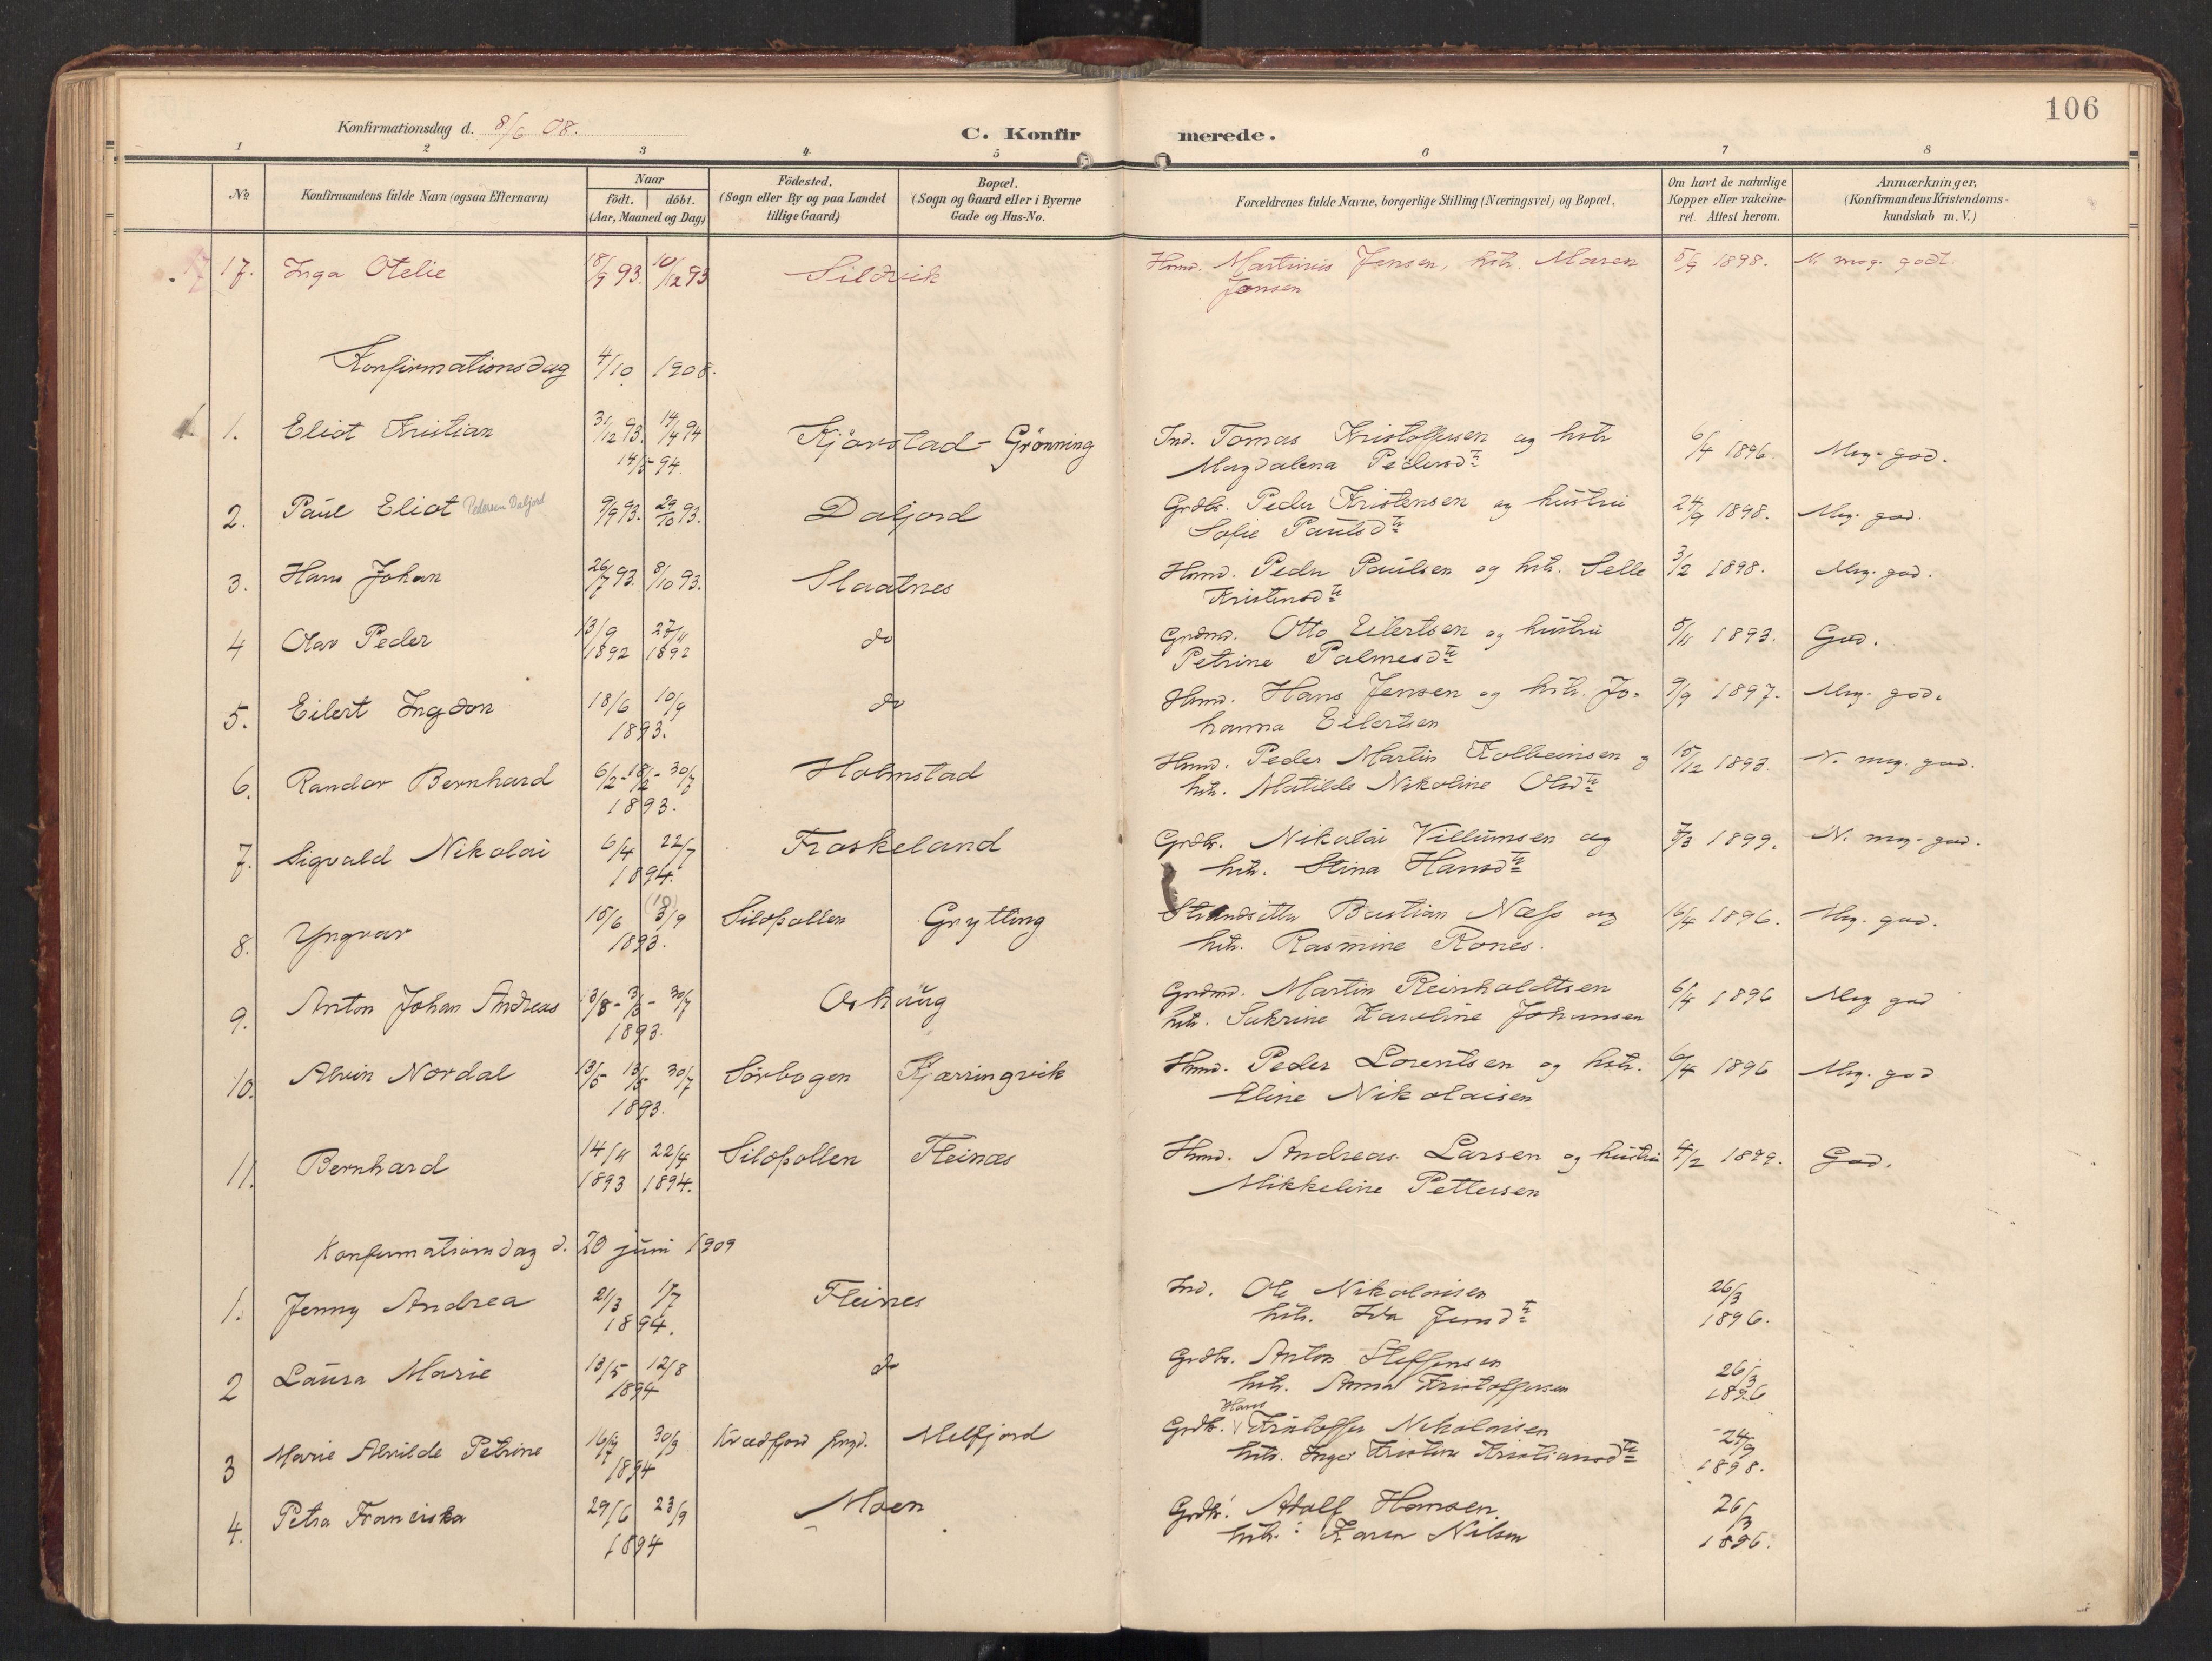 106
Konfirmationsdag d. 8/6 08.
C. Konfirmerede.
1 2 3 4 5 6 7 8
No Konfirmandens fulde Navn (ogsaa Efternavn) Naar födt. döbt. (Aar, Maaned og Dag) Födested. (Sogn eller By og paa Landet tillige Gaard) Bopæl. (Sogn og Gaard eller i Byerne Gade og Hus-No. Forældrenes fulde Navne, borgerlige Stilling (Næringsvei) og Bopæl. Om havt de naturlige Kopper eller vakcineret Attest herom. Anmærkninger, (Konfirmandens Kristendomskundskab m. V.)
17 17. Inga Otelie 18/9 93. 10/12 93 Sildvik Hmd. Martinus Jensen, hstr. Maren 5/9 1898. N. meg. godt.
Jensen
Konfirmationsdag 4/10 1908.
1. 1. Eliot Kristian 31/12 93. 14/4 94 Kjörstad - Grönning Ind. Tomas Kristoffersen og hstr 6/4 1896. Meg. god.
14/5 94. Magdalena Pedersdtr
2. Paul Eliot Pedersen Daljord 9/9 93. 29/10 93. Daljord Grdbr. Peder Kristensen og hustru 24/9 1898. Meg. god.
Sofie Paulsdtr
3. Hans Johan 26/7 93. 8/10 93. Slaatnes Hmd. Peder Paulsen og hstr. Selle 3/2 1898. Meg. god.
Kristensdtr
4 Olav Peder 13/9 1892 27/11 1892 do Grdmd. Otto Eilertsen og hustru 5/11 1893. God.
Petrine Palmesdtr
5. Eilert Ingdon 18/6 10/9 do Hmd. Hans Jensen og hstr. Jo- 9/9 1897. Meg. god.
1893. hanna Eilertsen
6. Randor Bernhard 6/2 - 18/2 - 30/7 Holmstad Hmd. Peder Martin Kolbeinsen og 15/12 1893. N. meg. god.
1893. hstr. Matilde Nikoline Olsdtr
7. Sigvald Nikolai 6/4 22/7 Fraskeland Grdbr. Nikolai Villumsen og 7/3 1899. N. meg. god.
1894. hstr. Stina Hansdtr
8. Yngvar 15/6 (18) 3/9 Sildpollen Grytling Strandsitter Bastian Næss og 16/4 1896. Meg. god.
1893. hstr. Rasmine Rones.
9. Anton Johan Andreas 13/8 - 3/3 - 30/7 Oshaug Grdmd. Martin Reinholdtsen 6/4 1896 Meg god
1893. hstr. Sakrine Karoline Johansen
10. Alvin Nordal 13/5 13/5 30/7 Sörbogen Kjærringvik Hmd. Peder Lorentsen og hstr. 6/4 1896 Meg. god
1893. Eline Nikolaisen
11. Bernhard 14/11 1893 22/4 1894. Sildpollen Fleinæs Hmd. Andreas Larsen og hustru 4/2 1899. God.
Mikkeline Pettersen
Konfirmationsdag d. 20 juni 1909
1. Jenny Andrea 21/3 1/7 Fleines Ind. Ole Nikolaisen 26/3
1894. hstr. Ida Jensdtr 1896.
2 Laura Marie 13/5 12/8 do Grdbr. Anton Steffensen 26/3
1894 hstr. Anna Kristoffersen 1896
Hans
3 Marie Alvilde Petrine 16/7 30/9 Kvædfjord prgd. Melfjord Grdbr. Kristoffer Nikolaisen 24/9
1894 hstr. Inger Kristine Kristiansdtr 1898.
4. Petra Franciska 29/6 23/9 Moen Grdbr. Adolf Hansen. 26/3
1894 hstr. Karen Nilsen 1896.